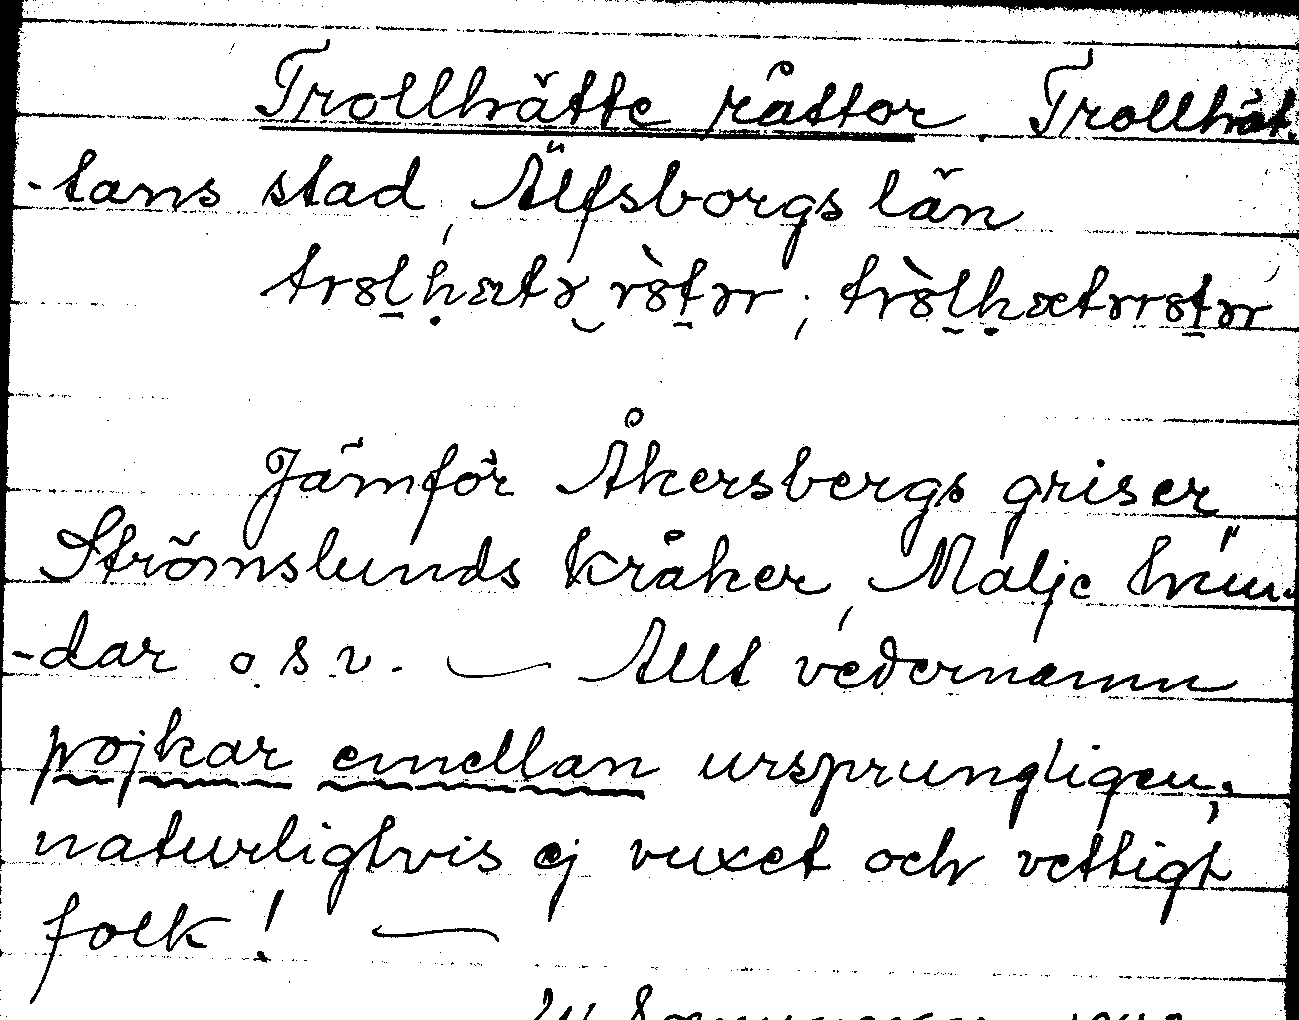 Trollhätte råttor. Trollhät-
-tans stad, Älfsborgs län
trɷlhætə rɷtər; trɷlhætərrɷtər
Jämför Åkersbergs griser,
Strömslunds kråker, Malje hun-
-dar o.s.v. — Allt vedernamn
pojkar emellan ursprungligen;
naturligtvis ej vuxet och vettigt
folk! —